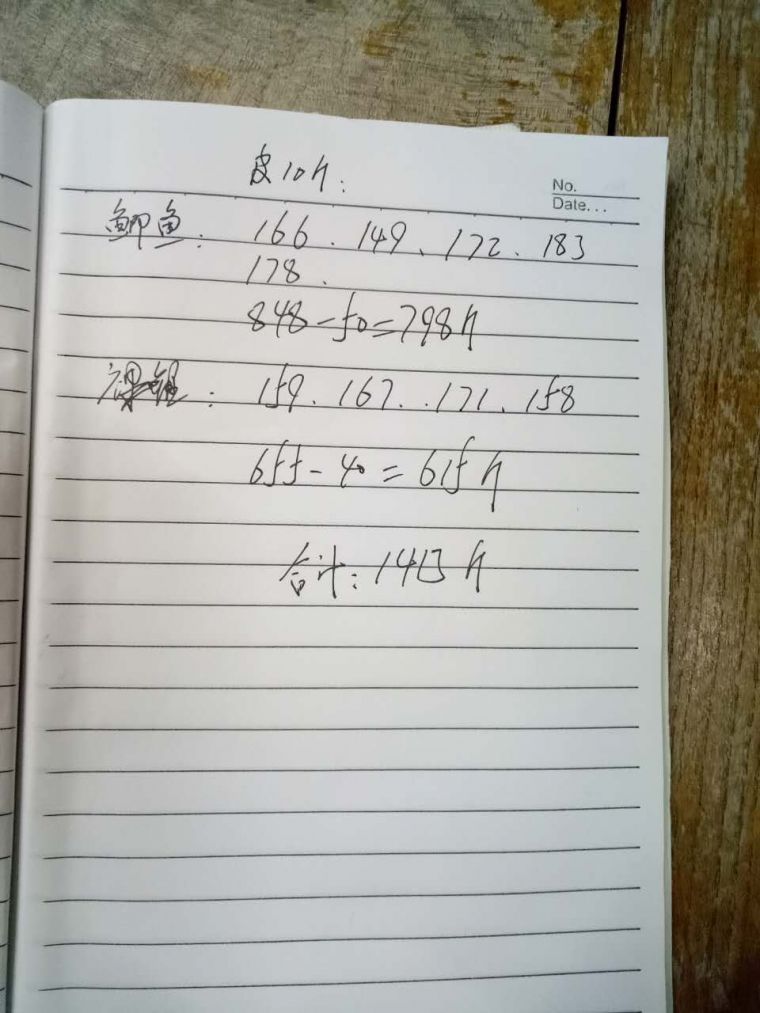 皮10斤:
No.
Date...
鲫鱼: 166、149、172、183
178、
848-50=798斤
: 159、167、171、158
655-40=615斤
合计:1413斤